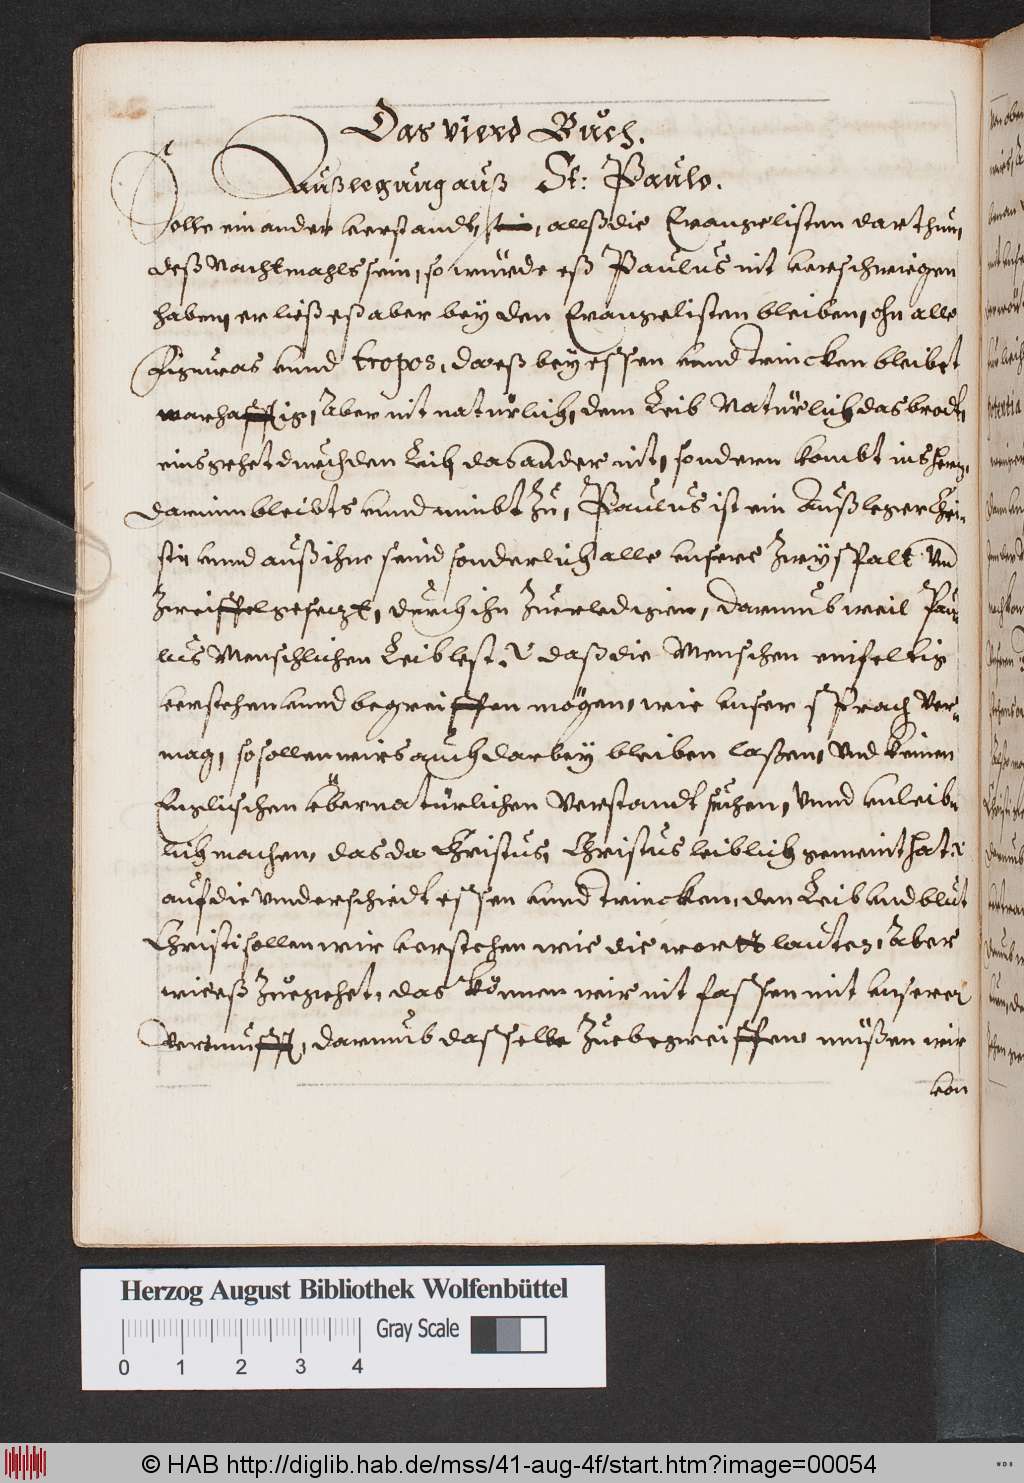 Das vierd Buch.
Außlegung auß St: Paulo.
Solle ein ander verstandt, allß die Evangelisten darthun,
deß Nachtmahls sein, so würde eß Paulus nit verschwiegen
haben, er ließ eß aber bey den Evangelisten bleiben, ohn alle
Figuras vnnd tropos, da eß bey essen vnnd trincken bleibet
warhafftig, Aber nit natürlich, dem Leib Natürlich das brodt,
eins gehet durch den Leib, das ander nit, sondern kombt ins hertz,
darinn bleibts vnnd nimbt zu, Paulus ist ein Außleger Chri-
sti vnnd auß ihme seind sonderlich alle vnsere Zwyspalt vnd
Zweiffel gesezt, durch ihn zuerledigen, darumb weil Pau-
lus Menschlichen Leib lest, daß die Menschen einfeltig
verstehen vnnd begreiffen mögen, wie vnser sprach ver-
mag, so sollen wirs auch darbey bleiben laßen, vnd keinen
Englischen übernatürlichen verstandt suchen, vnnd vnleib-
lich machen, das da Christus, Christus leiblich gemeint hat,
auf die vnderschiedt essen vnnd trincken, den Leib vnd blut
Christi sollen wir verstehen wie die wortt lauten, Aber
wie eß zuegehet, das können wir nit fassen mit vnserer
vernunfft, darumb dasselbe zuebegreiffen müßen wir
von
Herzog August Bibliothek Wolfenbüttel
Gray Scale
0 1 2 3 4
© HAB http://diglib.hab.de/mss/41-aug-4f/start.htm?image=00054